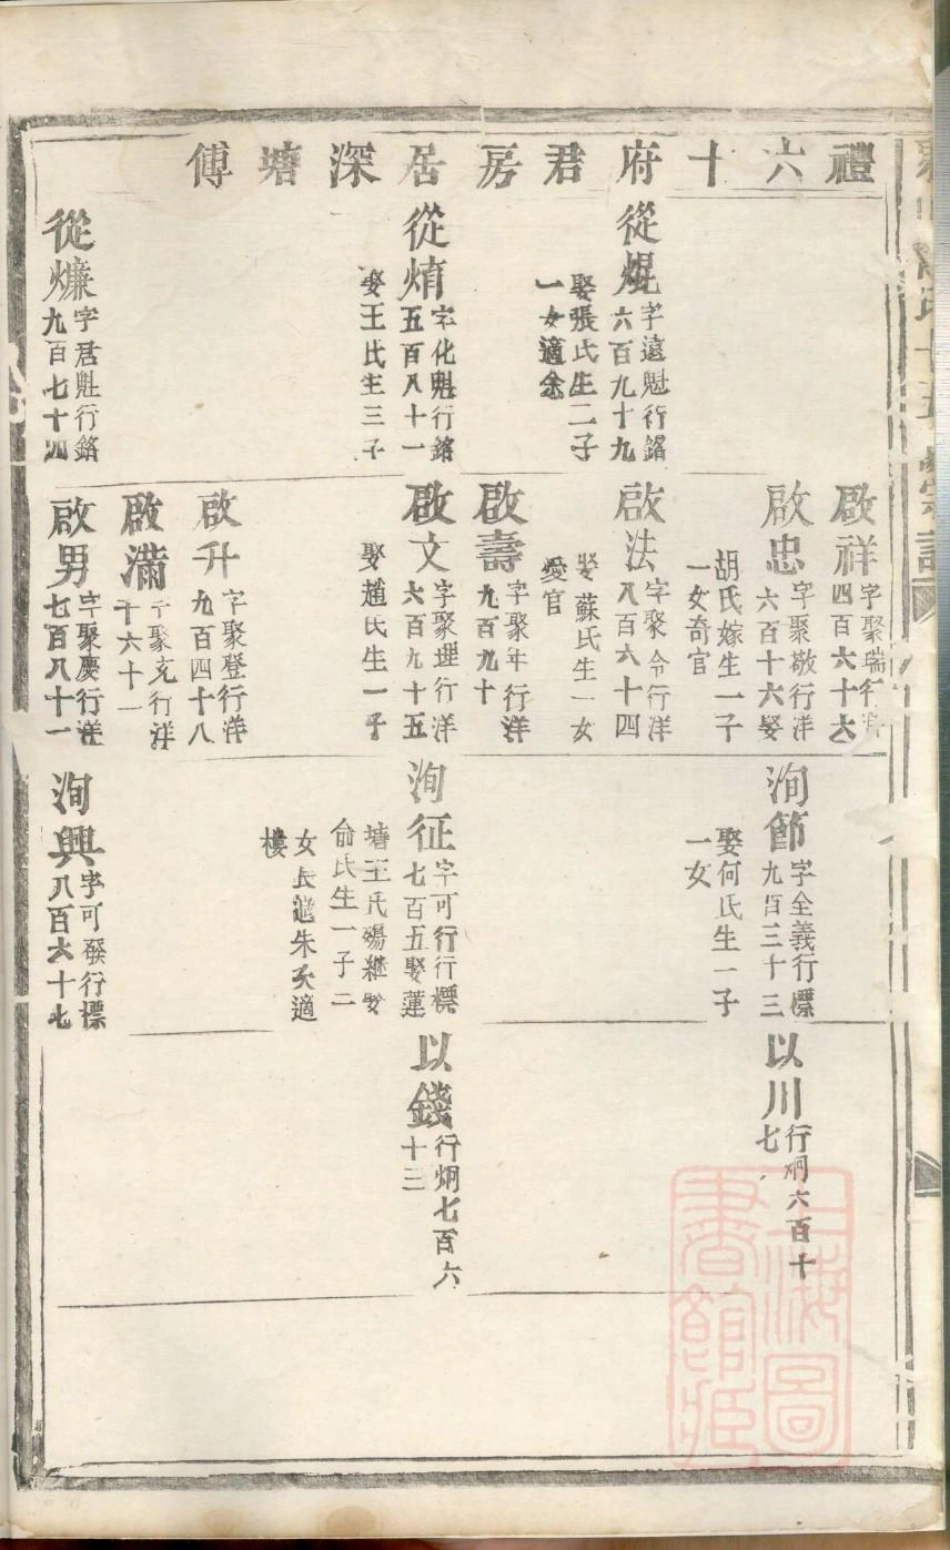 禮六十府君房居深塘傅
從焜
字遠魁行銘
六百九十九
娶張氏生二子
一女適余
從焴
字化魁行銘
五百八十一
娶王氏生三子
從㷳
字君魁行銘
九百七十四
啟祥
字聚瑞行洋
四百六十六
啟忠
字聚敬行洋
六百十六娶
胡氏嫁生一子
一女奇官
啟法
字聚令行洋
八百六十四
娶蘇氏生一女
愛官
啟壽
字聚年行洋
九百九十
啟文
字聚理行洋
六百九十五
娶趙氏生一子
啟升
字聚登行洋
九百四十八
啟滿
字聚充行洋
千六十一
啟男
字聚慶行洋
七百八十一
洵節
字全義行標
九百三十三
娶何氏生一子
一女
洵征
字可行行標
七百五娶蓮
塘王氏殤繼娶
俞氏生一子二
女長適朱次適
樓
洵興
字可發行標
八百六十七
以川
行炯六百十
七
以錢
行炯七百六
十三
上海圖
書館藏